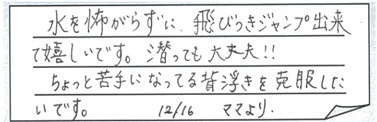 水を怖がらずに、飛びつきジャンプ出来
て嬉しいです。潜っても大丈夫!!
ちょっと苦手になってる背浮きを克服した
いです。 12/16 ママより.